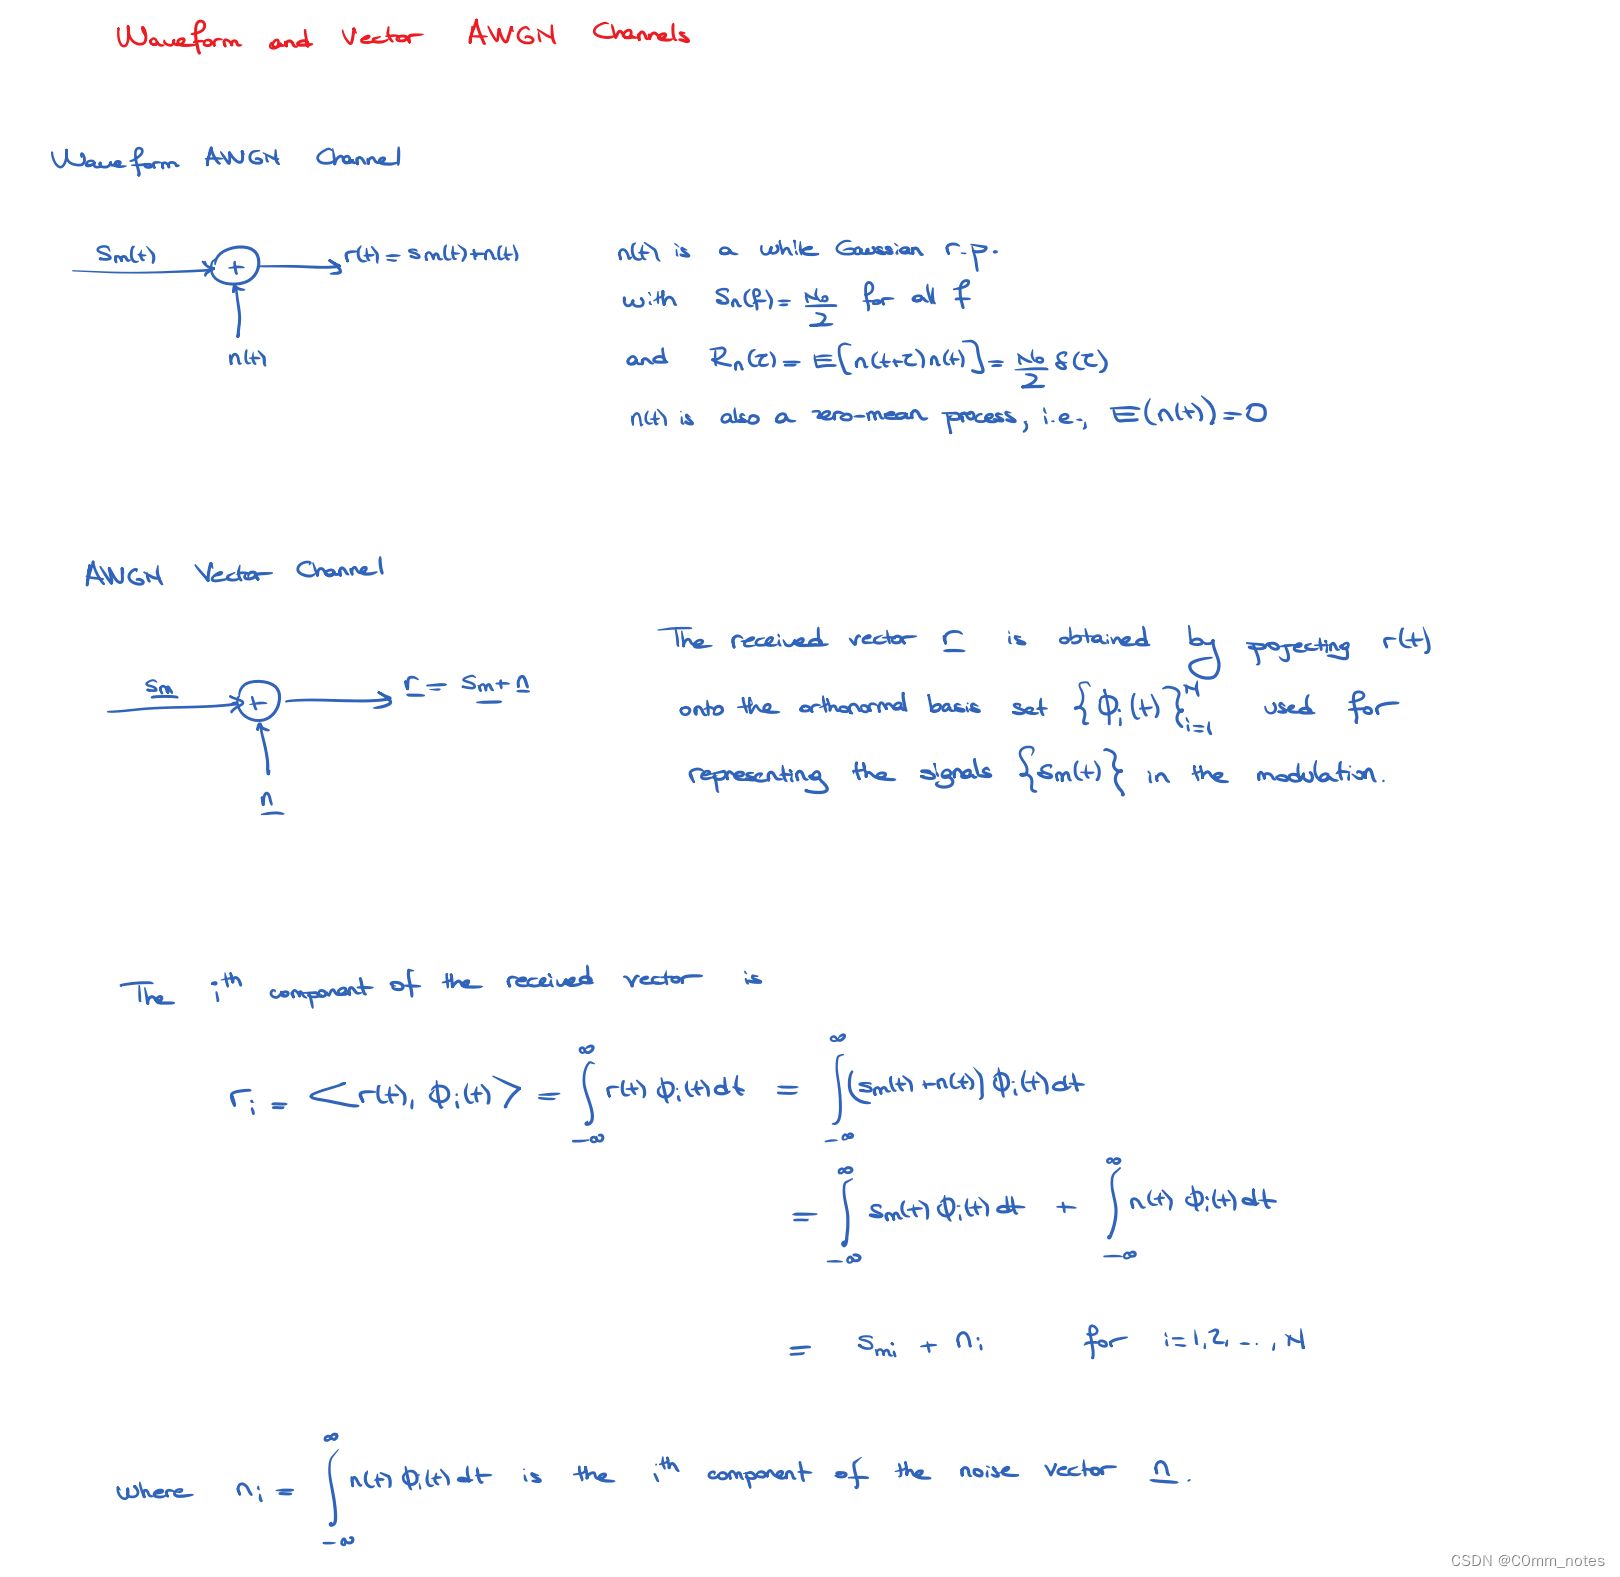 Waveform and Vector AWGN Channels
Waveform AWGN Channel
Sm(t)
+
r(t) = sm(t)+n(t)
n(t)
n(t) is a while Gaussian r.p.
with Sn(f) = No/2 for all f
and Rn(τ) = E[n(t+τ)n(t)] = No/2 δ(τ)
n(t) is also a zero-mean process, i.e., E(n(t)) = 0
AWGN Vector Channel
sm
+
r = sm + n
n
The received vector r is obtained by pojecting r(t)
onto the orthonormal basis set {ϕi(t)}_{i=1}^{N} used for
representing the signals {sm(t)} in the modulation.
The i^th component of the received vector is
ri = <r(t), ϕi(t)> = ∫_{-∞}^{∞} r(t) ϕi(t)dt = ∫_{-∞}^{∞} (sm(t)+n(t)) ϕi(t)dt
= ∫_{-∞}^{∞} sm(t) ϕi(t)dt + ∫_{-∞}^{∞} n(t) ϕi(t)dt
= smi + ni for i=1,2,...,N
where ni = ∫_{-∞}^{∞} n(t) ϕi(t)dt is the i^th component of the noise vector n.
CSDN @C0mm_notes